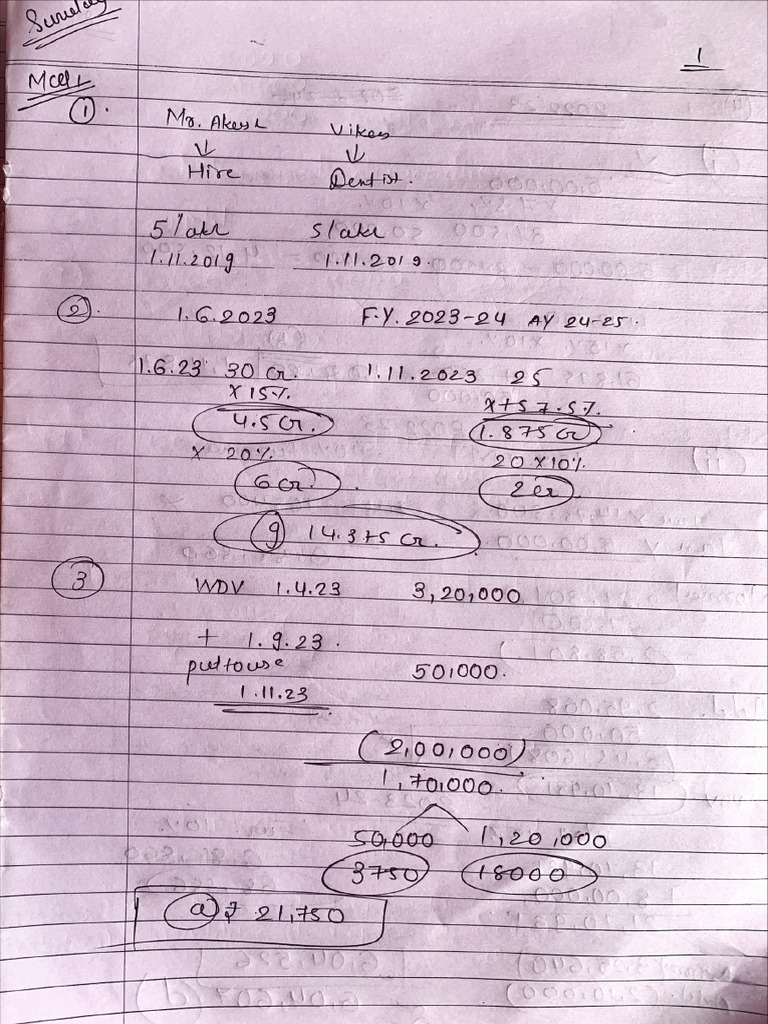 Sunday
1
MCQ 1
① .
Mr. Akash Vikas
↓ ↓
Hire Dentist.
5 lakh 5 lakh
1.11.2019 1.11.2019.
② . 1.6.2023 F.Y. 2023-24 AY 24-25.
1.6.23 30 Cr. 1.11.2023 25
x 15% x 7.5%.
4.5 Cr. 1.875 Cr
x 20% 20 x 10%
6 Cr. 2 Cr.
14.375 Cr.
③ WDV 1.4.23 3,20,000
+ 1.9.23.
put to use 50,000.
1.11.23
(2,00,000)
1,70,000.
50,000 1,20,000
3750 18000
(a) ₹ 21,750